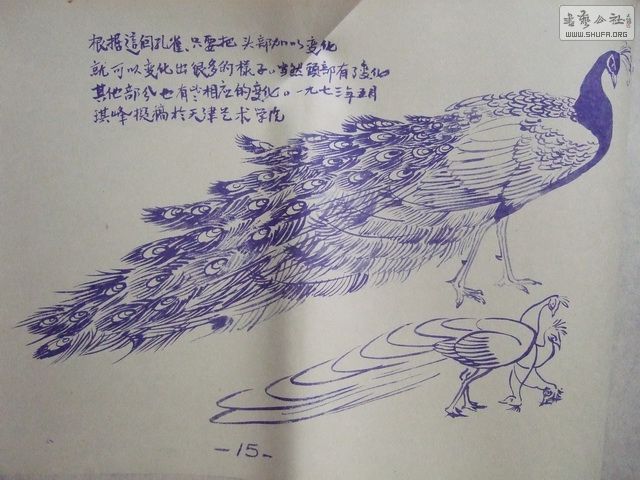 書藝公社
WWW.SHUFA.ORG
根据這個孔雀,只要把头部加以变化
就可以变化出很多的樣子。当然頭部有了变化
其他部分也有些相应的变化。一九七三年五月
琪峰擬稿於天津艺术学院
-15-